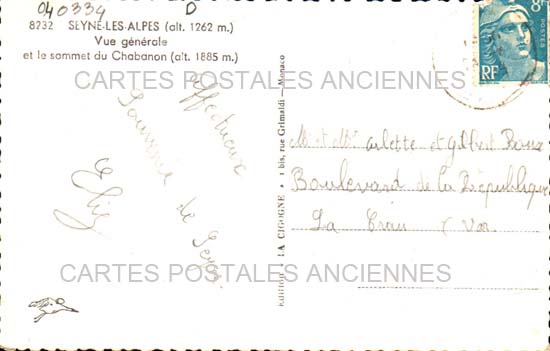 040334 D
8232 SEYNE-LES-ALPES (alt. 1262 m.)
Vue générale
et le sommet du Chabanon (alt. 1885 m.)
8F
POSTES
RF
CARTES POSTALES ANCIENNES
affectueux
Souvenir de Seyne
Edition " LA CIGOGNE " bis, rue Grimaldi - Monaco
M et Mme Arlette et Gilbert Roux
Boulevard de la République
La Crau (Var
CARTES POSTALES ANCIENNES